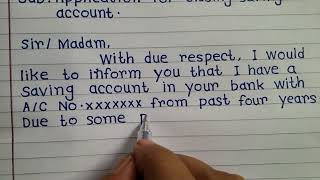 Sub: Application for closing saving
account.
Sir/ Madam,
With due respect, I would
like to inform you that I have a
saving account in your bank with
A/C No.xxxxxxx from past four years
Due to some